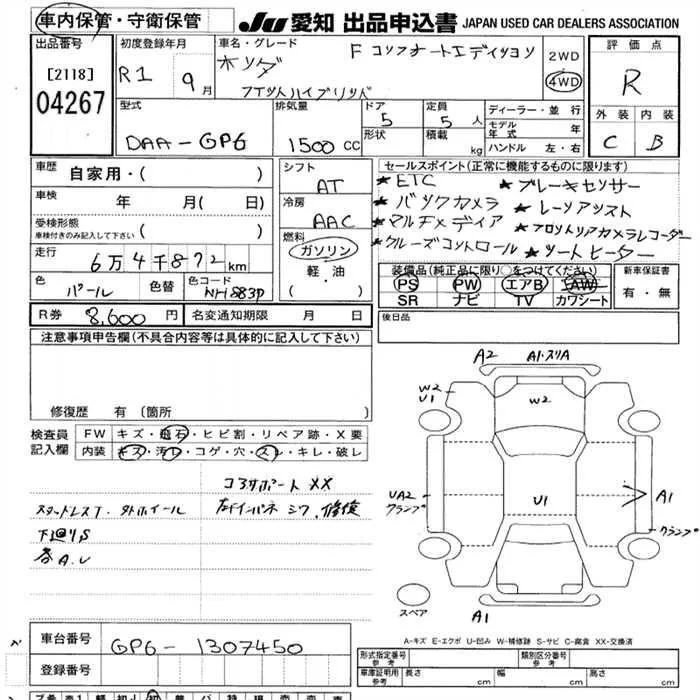 車内保管・守衛保管
JU 愛知 出品申込書 JAPAN USED CAR DEALERS ASSOCIATION
出品番号
[2118]
04267
初度登録年月
R1 9月
車名・グレード
ホンダ
F コンフォートエディション
フィットハイブリッド
2WD
4WD
評価点
R
外装 内装
C B
型式
DAA-GP6
排気量
1500 CC
ドア
5
形状
定員
5人
積載
kg
ディーラー・並行
モデル年式 年
ハンドル 左・右
車歴
自家用・( )
車検 年 月( 日)
受検形態
車検付きのみ記入して下さい ( )
走行
6万4千872km
色
パール
色替
色コード
NH883P
シフト
AT
冷房
AAC
燃料
ガソリン
軽・油
( ・ )
セールスポイント(正常に機能するものに限ります)
★ETC ★ブレーキセンサー
★バックカメラ ★レーンアシスト
★マルチメディア ★フロントリアカメラレコーダー
★クルーズコントロール ★シートヒーター
装備品(純正品に限り○をつけてください)
PS PW エアB AW
SR ナビ TV カワシート
新車保証書
有・無
R券 8,600円 名変通知期限 月 日
後日品
注意事項申告欄(不具合内容等は具体的に記入して下さい)
修復歴 有(箇所
検査員記入欄
FW キズ・飛石・ヒビ割・リペア跡・X要
内装 キズ・汚レ・コゲ・穴・スレ・キレ・破レ
コアサポート XX
スタッドレスT・外ホイール
左インパネ シワ、修復
下廻りS
A.U
A2 A1・スリA
W2
U1
W2
UA2
クランプ
U1
A1
クランプ
スペア
A1
A-キズ E-エクボ U-凹み W-補修跡 S-サビ C-腐食 XX-交換済
車台番号 GP6-1307450
登録番号
形式指定番号 参考
類別区分番号 参考
車庫証明用 参考 長さ cm 幅 cm 高さ cm